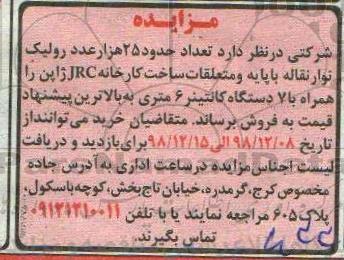 مزایده
شرکتی درنظر دارد تعداد حدود۲۵هزارعدد رولیک
نوار نقاله با پایه ومتعلقات ساخت کارخانه JRC ژاپن را
همراه با۷ دستگاه کانتینر۶ متری به بالاترین پیشنهاد
قیمت به فروش برساند. متقاضیان خرید می توانند از
تاریخ ۹۸/۱۲/۰۸ الی ۹۸/۱۲/۱۵ برای بازدید و دریافت
لیست اجناس مزایده در ساعت اداری به آدرس جاده
مخصوص کرج، گرمدره، خیابان تاج بخش، کوچه باسکول،
پلاک ۶۰۵ مراجعه نمایند یا با تلفن ۰۹۱۲۱۲۱۰۰۱۱
تماس بگیرند.